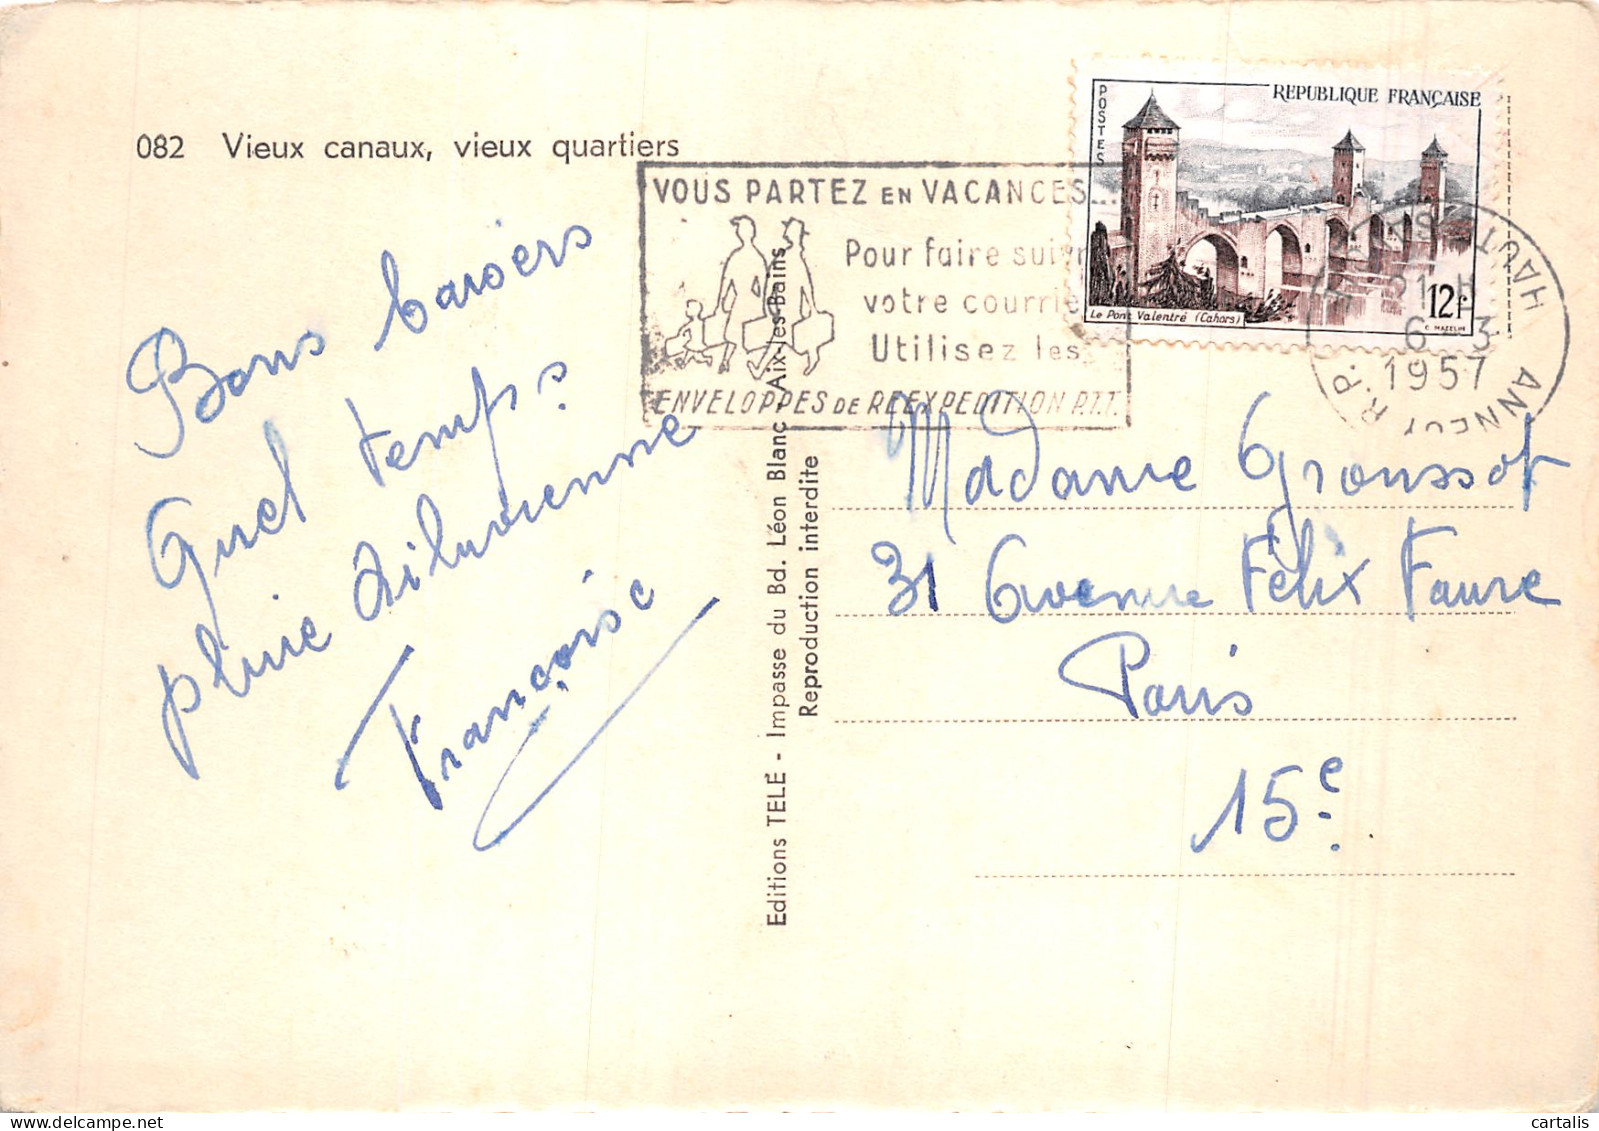 082 Vieux canaux, vieux quartiers
VOUS PARTEZ EN VACANCES...
Pour faire suivr
votre courrie
Utilisez les
ENVELOPPES DE REEXPEDITION P.T.T.
POSTES
REPUBLIQUE FRANÇAISE
Le Pont Valentré (Cahors)
12f
C. MAZELIN
ANNECY R.P.
HAUTE
21 H
6-3
1957
Bons baisers
Quel temps?
pluie diluvienne
Françoise
Editions TELÉ - Impasse du Bd. Léon Blanc - Aix-les-Bains
Reproduction interdite
Madame Groussot
31 Avenue Félix Faure
Paris
15e
cartalis
delcampe.net